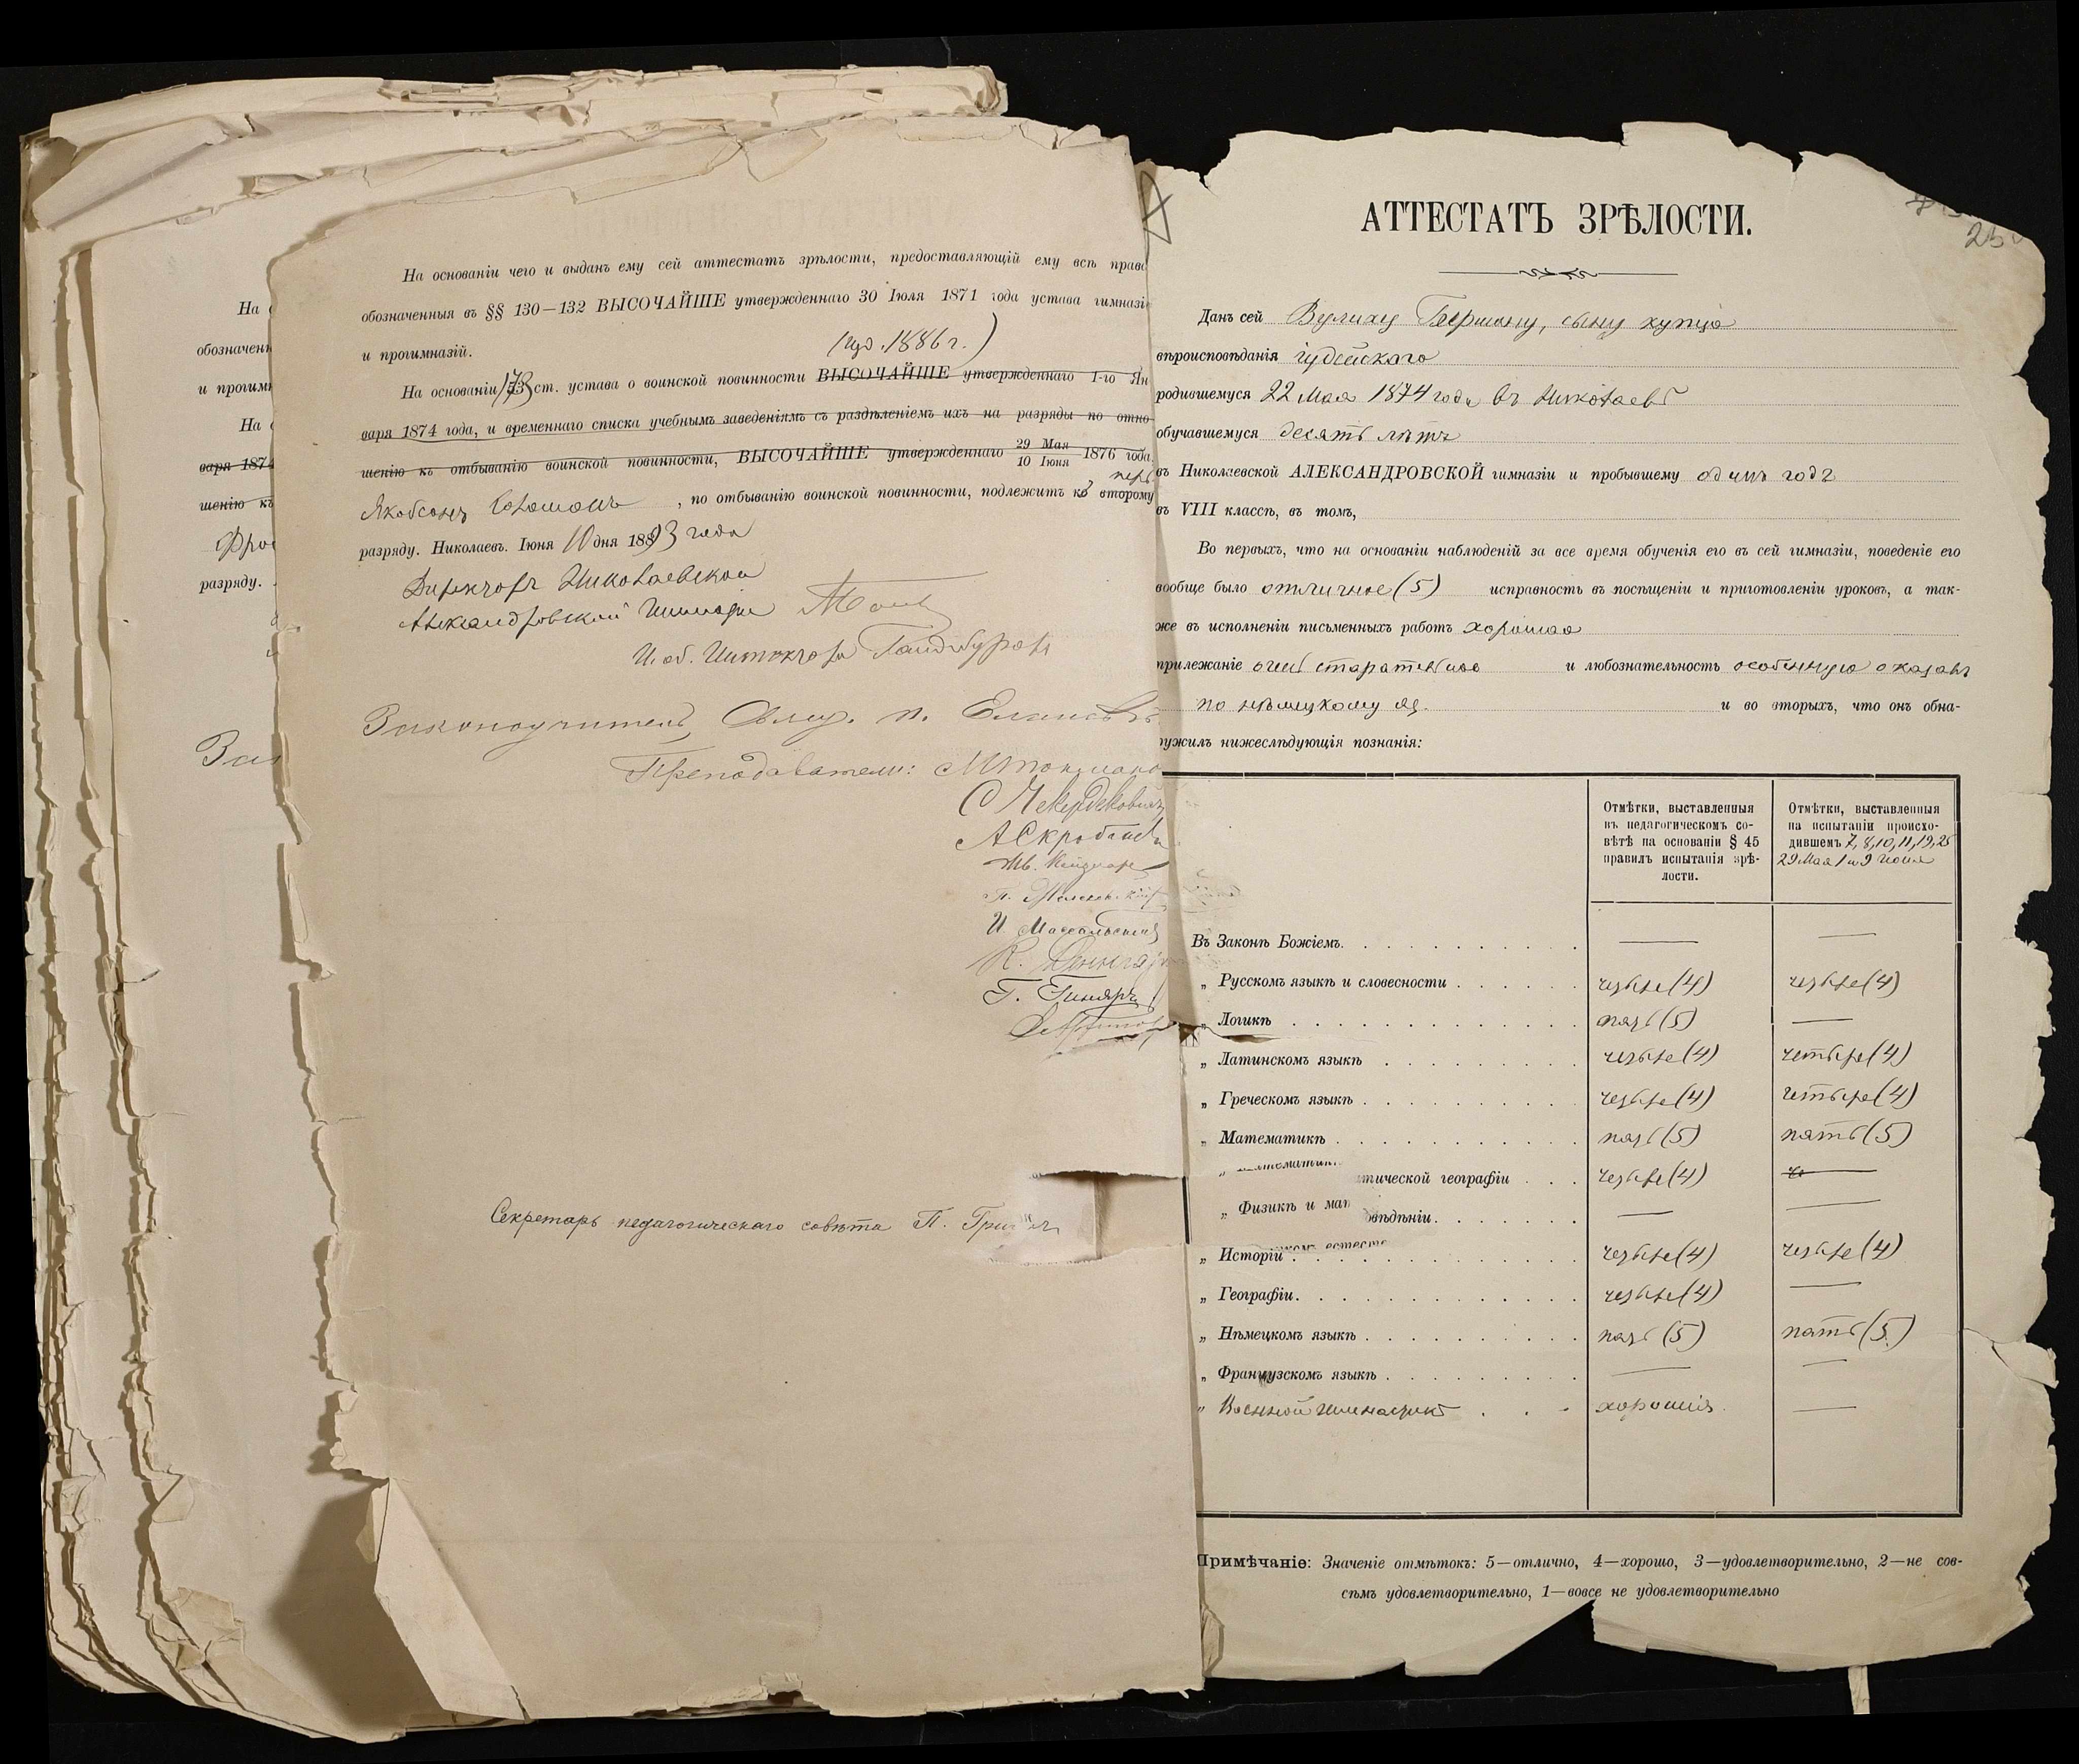 На
обозначен
и прогим
На
варя 1874
шенію къ
Фро
разряду.
За
На основаніи чего и выданъ ему сей аттестатъ зрѣлости, предоставляющій ему всѣ права
обозначенныя въ §§ 130—132 ВЫСОЧАЙШЕ утвержденнаго 30 Іюля 1871 года устава гимназі
и прогимназій.
(изд. 1886 г.)
На основаніи 173 ст. устава о воинской повинности ВЫСОЧАЙШЕ утвержденнаго 1-го Ян
варя 1874 года, и временнаго списка учебнымъ заведеніямъ съ раздѣленіемъ ихъ на разряды по отно-
шенію къ отбыванію воинской повинности, ВЫСОЧАЙШЕ утвержденнаго 29 Мая 10 Іюня 1876 года.
Якобсонъ Соломонъ, по отбыванію воинской повинности, подлежитъ ко второму
разряду. Николаевъ. Іюня 10 дня 1893 года
Директоръ Николаевской
Александровской Гимназіи
И. об. Инспектора
Законоучитель, п.
Преподаватели:
И. Массальскій
Секретарь педагогическаго совѣта П.
АТТЕСТАТЪ ЗРѢЛОСТИ.
Данъ сей Вулиху Берману, сыну купца
вѣроисповѣданія іудейскаго
родившемуся 22 Мая 1874 года въ Николаевѣ
обучавшемуся десять лѣтъ
въ Николаевской АЛЕКСАНДРОВСКОЙ гимназіи и пробывшему одинъ годъ
въ VIII классѣ, въ томъ,
Во первыхъ, что на основаніи наблюденій за все время обученія его въ сей гимназіи, поведеніе его
вообще было отличное (5) исправность въ посѣщеніи и приготовленіи уроковъ, а так-
же въ исполненіи письменныхъ работъ хорошая
прилежаніе очень старательное и любознательность особенную оказалъ
по нѣмецкому яз. и во вторыхъ, что онъ обна-
ружилъ нижеслѣдующія познанія:
Отмѣтки, выставленныя
въ педагогическомъ со-
вѣтѣ на основаніи § 45
правилъ испытанія зрѣ-
лости.
Отмѣтки, выставленныя
на испытаніи происхо-
дившемъ 7, 8, 10, 11, 19, 26
29 Мая 1 и 9 Іюня
Въ Законѣ Божіемъ. — —
„ Русскомъ языкѣ и словесности четыре (4) четыре (4)
„ Логикѣ пять (5) —
„ Латинскомъ языкѣ четыре (4) четыре (4)
„ Греческомъ языкѣ четыре (4) четыре (4)
„ Математикѣ пять (5) пять (5)
тической географіи четыре (4) —
„ Физикѣ и мат
овѣдѣніи. — —
„ Исторіи четыре (4) четыре (4)
„ Географіи. четыре (4) —
„ Нѣмецкомъ языкѣ пять (5) пять (5)
„ Французскомъ языкѣ — —
„ Военной гимнастикѣ хорошія —
Примѣчаніе: Значеніе отмѣтокъ: 5—отлично, 4—хорошо, 3—удовлетворительно, 2—не сов-
сѣмъ удовлетворительно, 1—вовсе не удовлетворительно